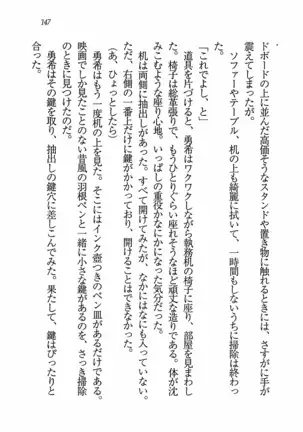 147
ドボードの上に並んだ高価そうなスタンドや置き物に触れるときには、さすがに手が
震えてしまったが。
ソファーやテーブル、机の上も綺麗に拭いて、一時間もしないうちに掃除は終わっ
た。
「これでよし、と」
道具を片づけると、勇希はワクワクしながら執務机の椅子に座り、部屋を見まわし
た。椅子は総革張りで、もうひとりぐらい座れそうなほど頑丈な造りである。体が沈
みこむような座り心地。いっぱしの重役かなにかになった気分だった。
机は両側に抽出しがあった。すべて開けてみたが、なかにはなにも入っていない。
ただ、右側の一番上だけに鍵がかかっており、開けることはできなかった。
(あ、ひょっとしたら)
勇希はもう一度机の上を見た。そこにはインク壺つきのペン皿があるだけである。
映画でしか見たことのない昔風の羽根ペンと一緒に小さな鍵があるのを、さっき掃除
中に見つけたのだ。
勇希はその鍵を取り、抽出しの鍵穴に差しこんでみた。果たして、鍵はぴったりと
合った。